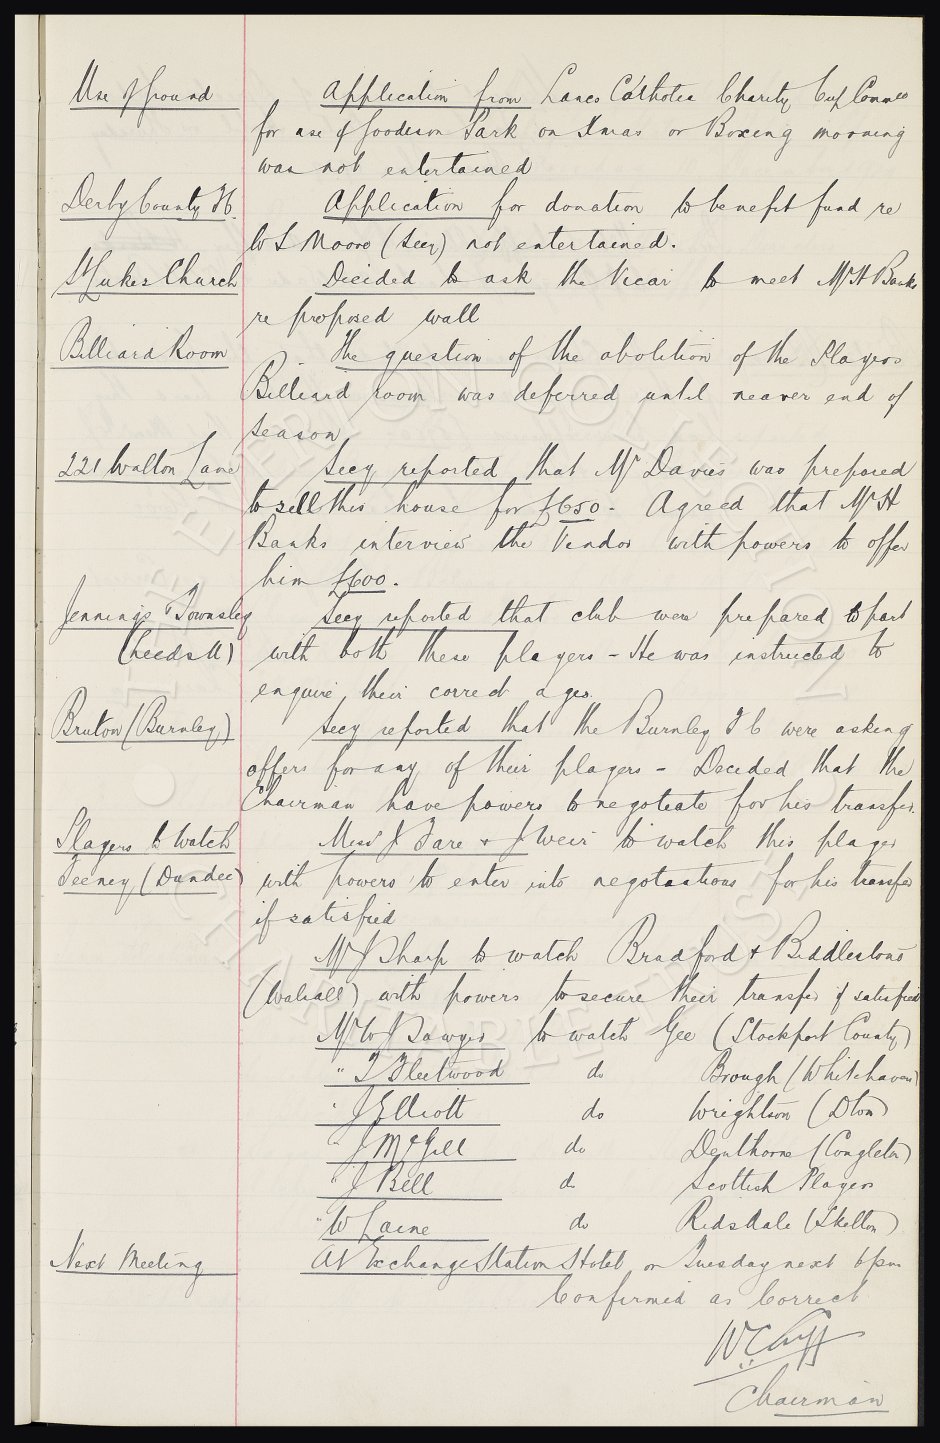 Use of Ground Application from Lancs Catholic Charity Cup Commee
for use of Goodison Park on Xmas or Boxing morning
was not entertained
Derby County F.C. Application for donation to benefit fund re
W S Moore (Secy) not entertained.
St Lukes Church Decided to ask the Vicar to meet Mr H Banks
re proposed wall
Billiard Room The question of the abolition of the Players
Billiard room was deferred until nearer end of
season
221 Walton Lane Secy reported that Mr Davies was prepared
to sell this house for £650 - Agreed that Mr H
Banks interview the Vendor with powers to offer
him £600.
Jennings & Townsley Secy reported that club were prepared to part
(Leeds U) with both these players - He was instructed to
enquire their correct ages.
Bruton (Burnley) Secy reported that the Burnley F C were asking
offers for any of their players - Decided that the
Chairman have powers to negotiate for his transfer.
Players to Watch Messrs J Fare & J Weir to watch this player
Feeney (Dundee) with powers to enter into negotations for his transfer
if satisfied
Mr J Sharp to watch Bradford & Biddlestone
(Walsall) with powers to secure their transfer if satisfied
Mr W J Sawyer to watch Gee (Stockport County)
" T Fleetwood do Brough (Whitehaven)
" J Elliott do Wrightson (Dton)
" J McGill do Denthorne (Congleton)
" J Bell do Scottish Players
" W Laine do Ridsdale (Skelton)
Next Meeting At Exchange Station Hotel on Tuesday next 6pm
Confirmed as Correct
W C Cuff
Chairman
THE EVERTON COLLECTION
CHARITABLE TRUST